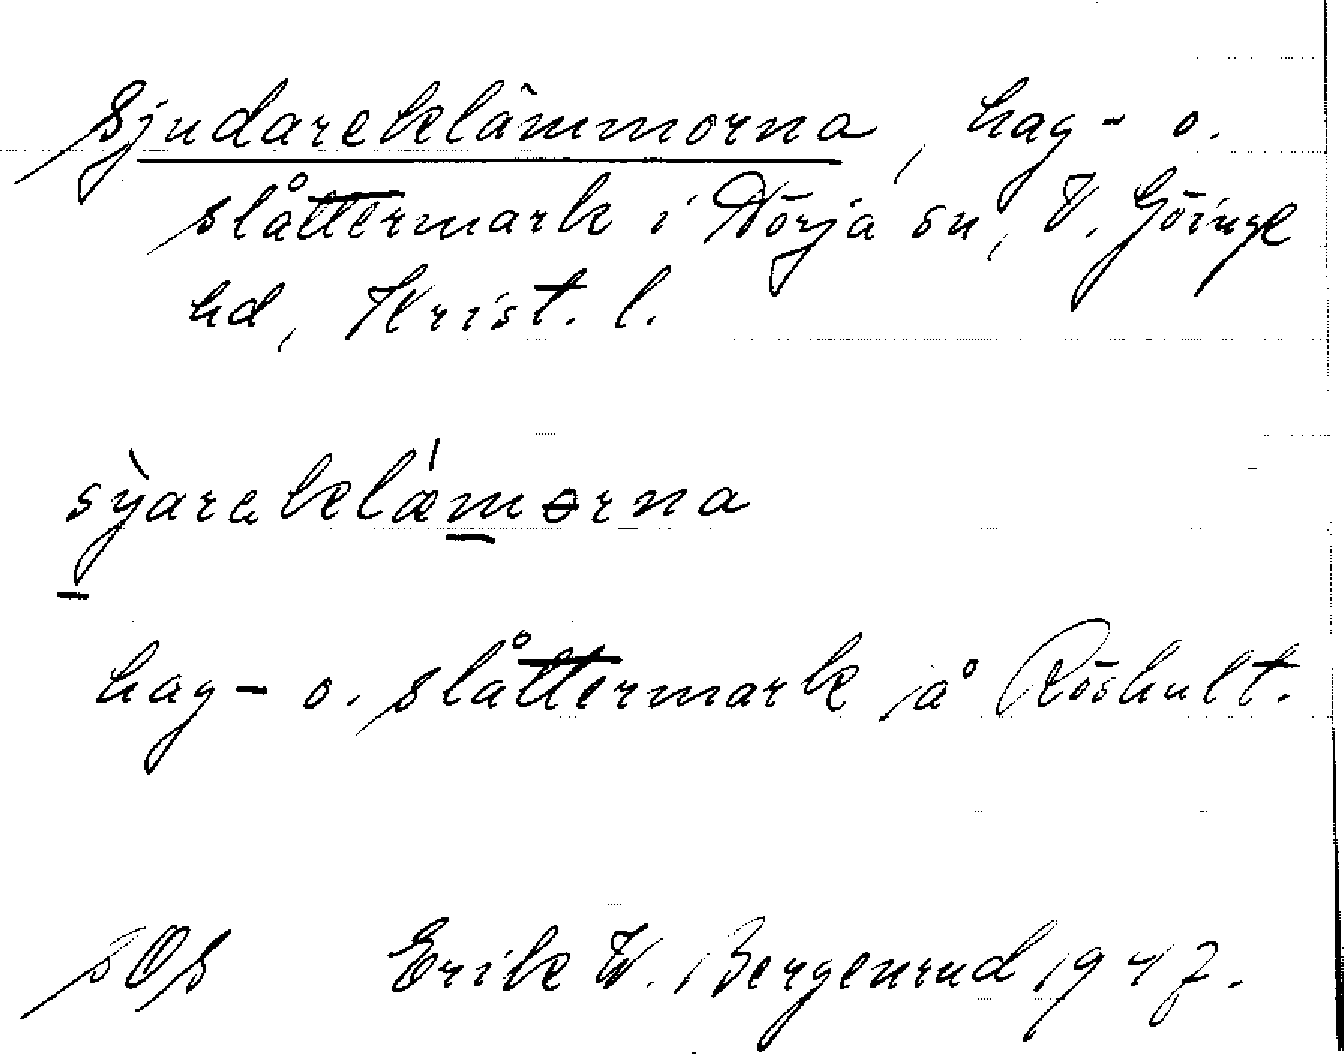 Sjudareklämmorna, hag- o.
slåttermark i Nörja sn, V. Göinge
hd, Krist. l.
sỳareklǽmərna
hag- o. slåttermark å Röshult.
SOS Erik W. Bergenrud 1947.